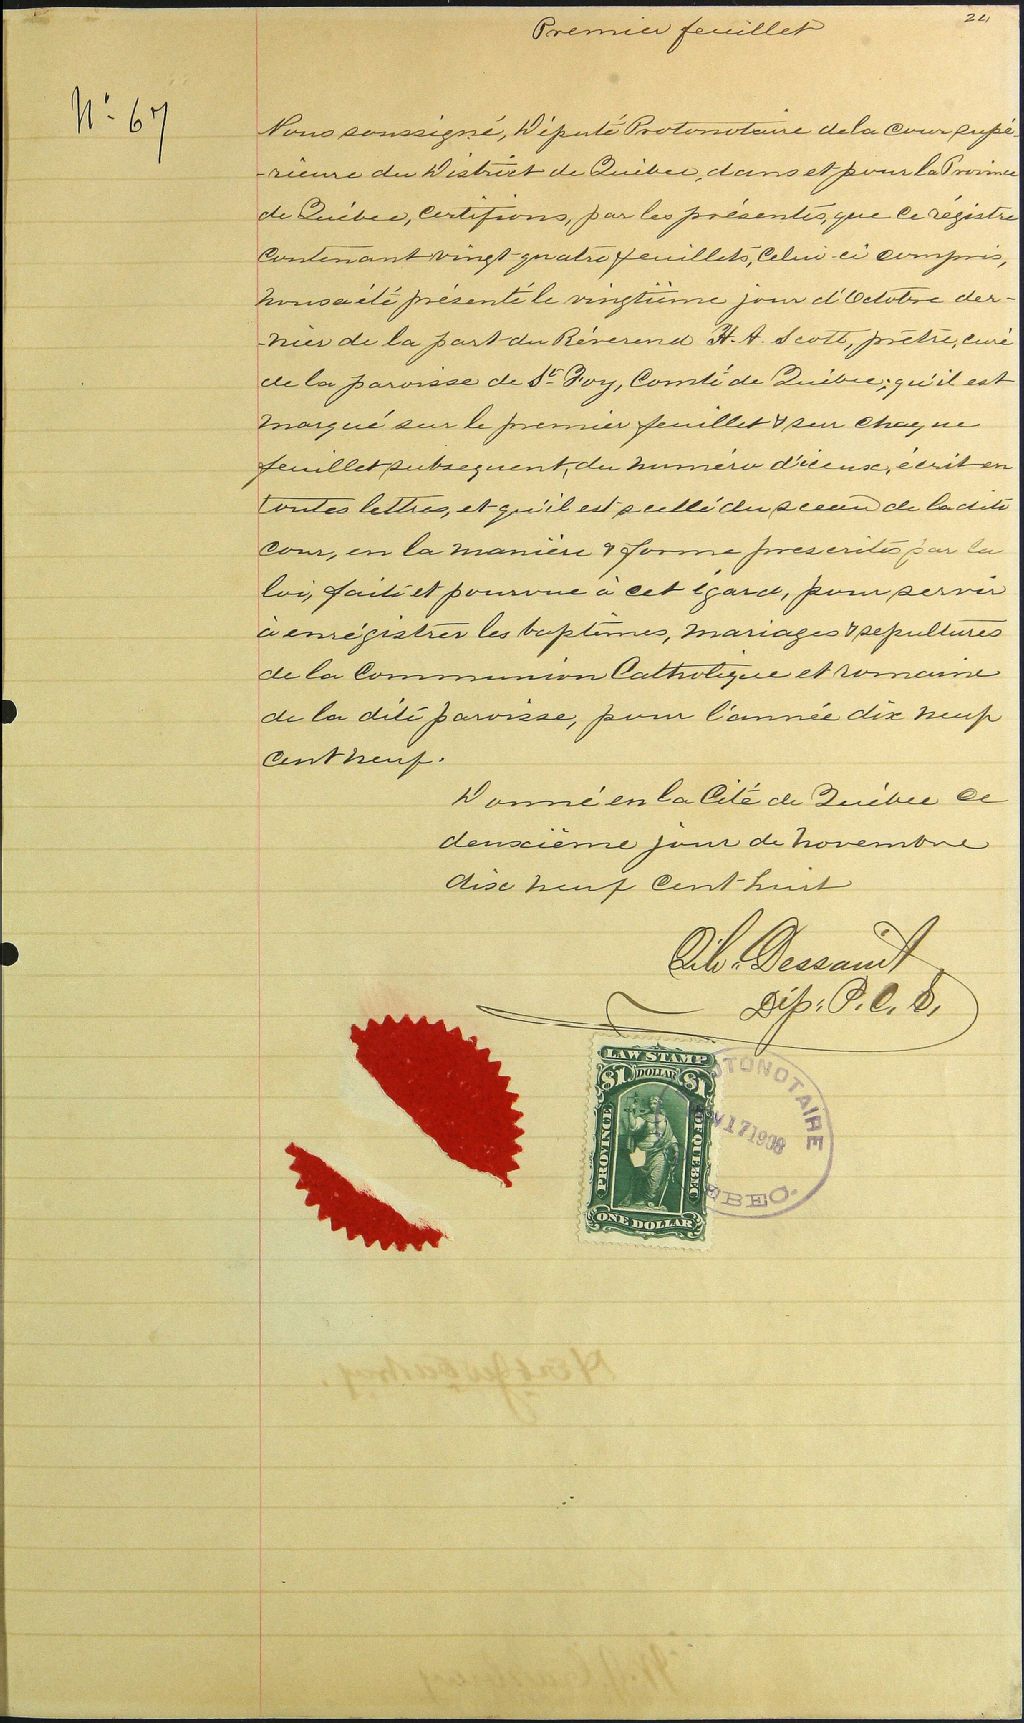 24
Premier feuillet
No. 67
Nous soussigné, Député Protonotaire de la Cour supé-
-rieure du District de Québec, dans et pour la Province
de Québec, certifions, par les présentes, que ce régistre
contenant vingt-quatre feuillets, celui-ci compris,
nous a été présenté le vingtième jour d'Octobre der-
-nier de la part du Révérend H. A. Scott, prêtre, curé
de la paroisse de Ste Foy, Comté de Québec; qu'il est
marqué sur le premier feuillet & sur chaque
feuillet subsequent, du numéro d'iceux, écrit en
toutes lettres, et qu'il est scellé du sceau de la dite
cour, en la manière & forme prescrites par la
loi, faite et pourvue à cet égard, pour servir
à enrégistrer les baptêmes, mariages & sepultures
de la Communion Catholique et romaine
de la dite paroisse, pour l'année dix neuf
cent neuf.
Donné en la Cité de Québec ce
deuxième jour de novembre
dix neuf cent huit
Dessault
Dép: P. C. S.
LAW STAMP
$1 DOLLAR $1
PROVINCE OF QUEBEC
ONE DOLLAR
OTONOTAIRE
V 17 1908
EBEC.